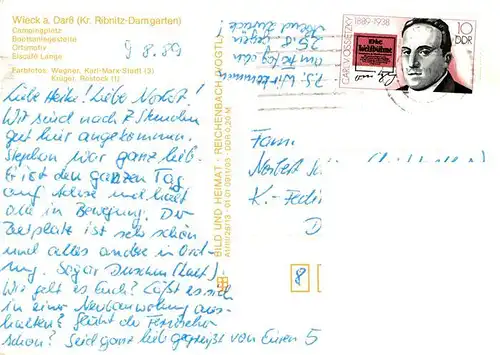 Wieck a. Darß (Kr. Ribnitz-Damgarten)
Campingplatz
Bootsanlegestelle
Ortsmotiv
Eiscafé Lange
Farbfotos: Wegner, Karl-Marx-Stadt (3)
Krüger, Rostock (1)
9 8.89
Liebe Heike! Liebe Norbert!
Wir sind nach 7 Stunden
gut hier angekommen.
Stephan war ganz lieb.
Er ist den ganzen Tag
auf Achse und hält
alle in Bewegung. Der
Zeltplatz ist sehr schön
und alles andere in Ord-
nung. Sogar Duschen (kalt).
Wie geht es Euch? Läßt es sich
in einer Neubauwohnung aus-
halten? Geht der Fernseher
schon? Seid ganz lieb gegrüßt von Euren 5
P.S. Wir kommen
am 25.8. gegen
zurück!
BILD UND HEIMAT · REICHENBACH (VOGTL)
A1/III/26/13 · 01 01 0311/03 · DDR 0,20 M
CARL V. OSSIETZKY
1889-1938
Die Weltbühne
10
DDR
Fam.
Norbert
K.-
D
8